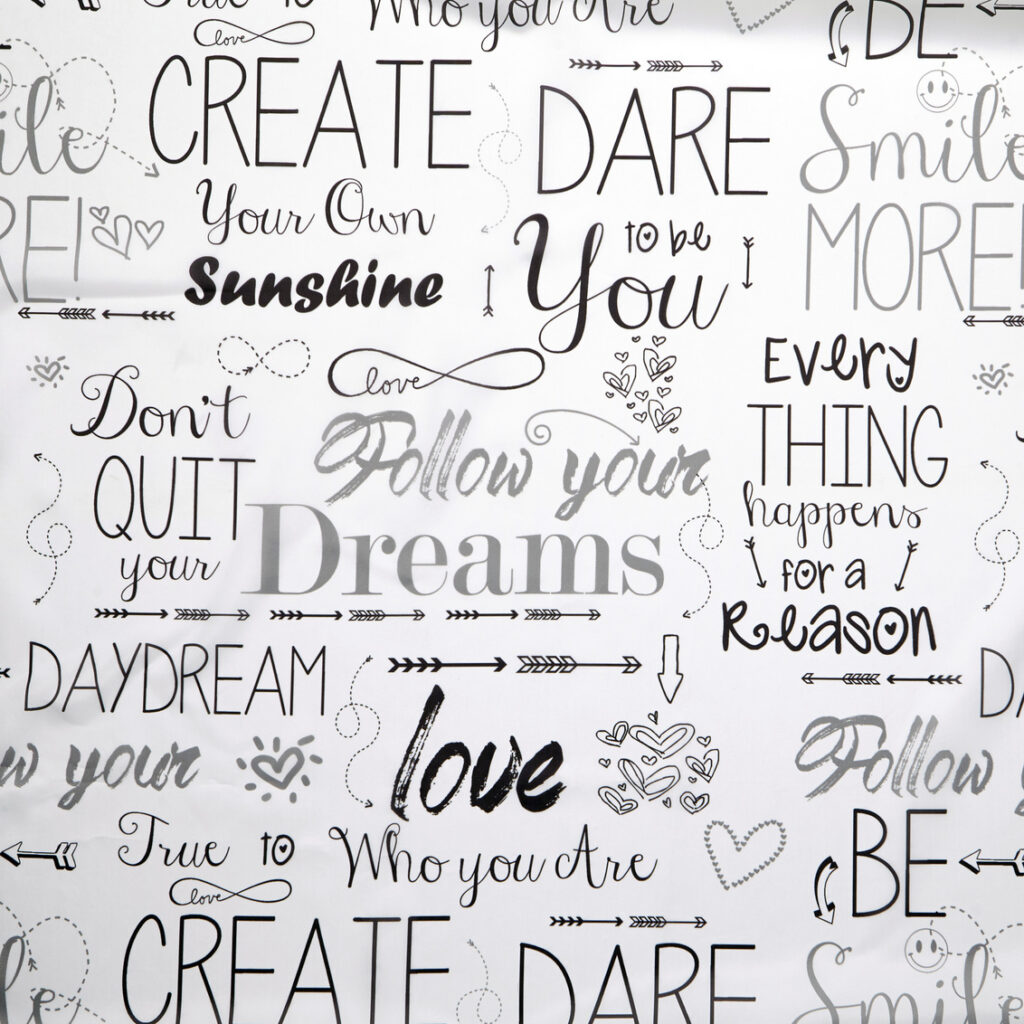 True to
Who you Are
BE
love
CREATE
Your Own
Sunshine
DARE
to be
You
Smile
MORE!
ile
RE!
love
Don't
QUIT
your
DAYDREAM
Follow your
Dreams
Every
THING
happens
for a
Reason
love
w your
D
Follow
True to
Who you Are
BE
love
CREATE
DARE
Smile
le